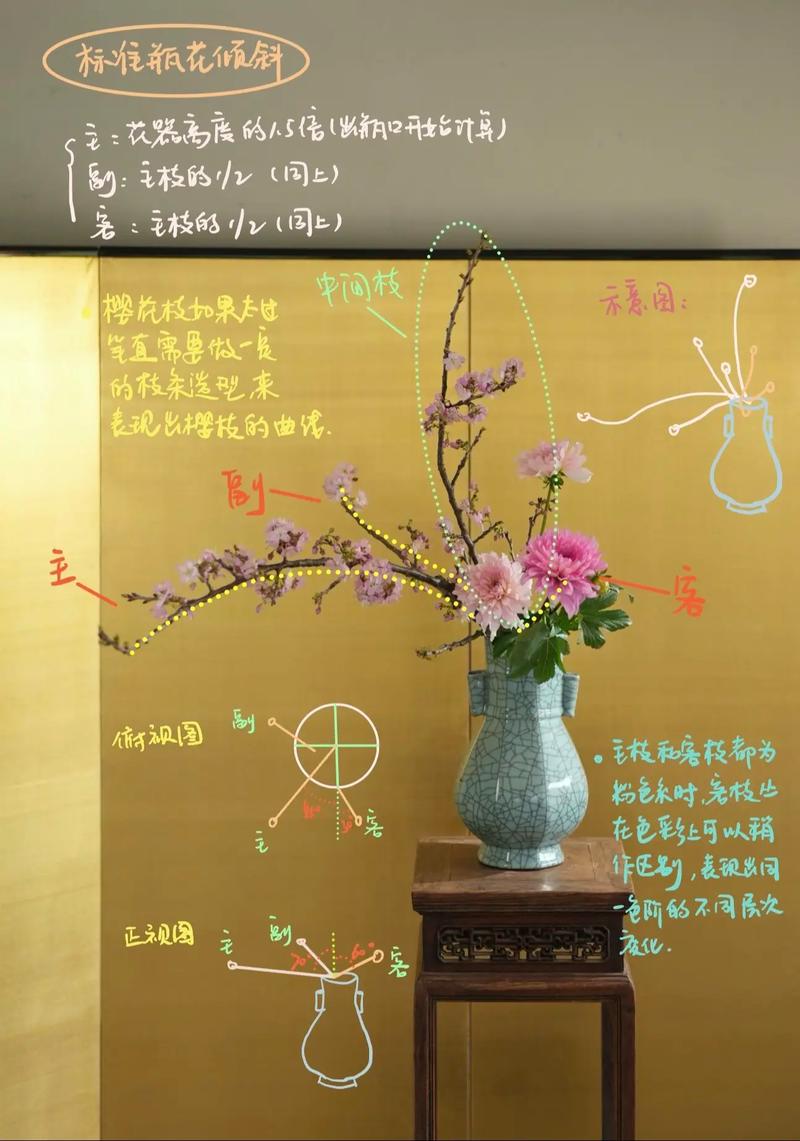 标准瓶花倾斜
主：花器高度的1.5倍（出瓶口开始计算）
副：主枝的1/2（同上）
客：主枝的1/2（同上）
中间枝
示意图：
樱花枝如果太过
笔直需要做一定
的枝条造型，来
表现出樱枝的曲线.
副
主
客
俯视图
副
主
45°
客
主枝和客枝都为
粉色系时，客枝丛
在色彩上可以稍
作区别，表现出同
一色阶的不同层次
变化.
正视图
主
副
70°
60°
客